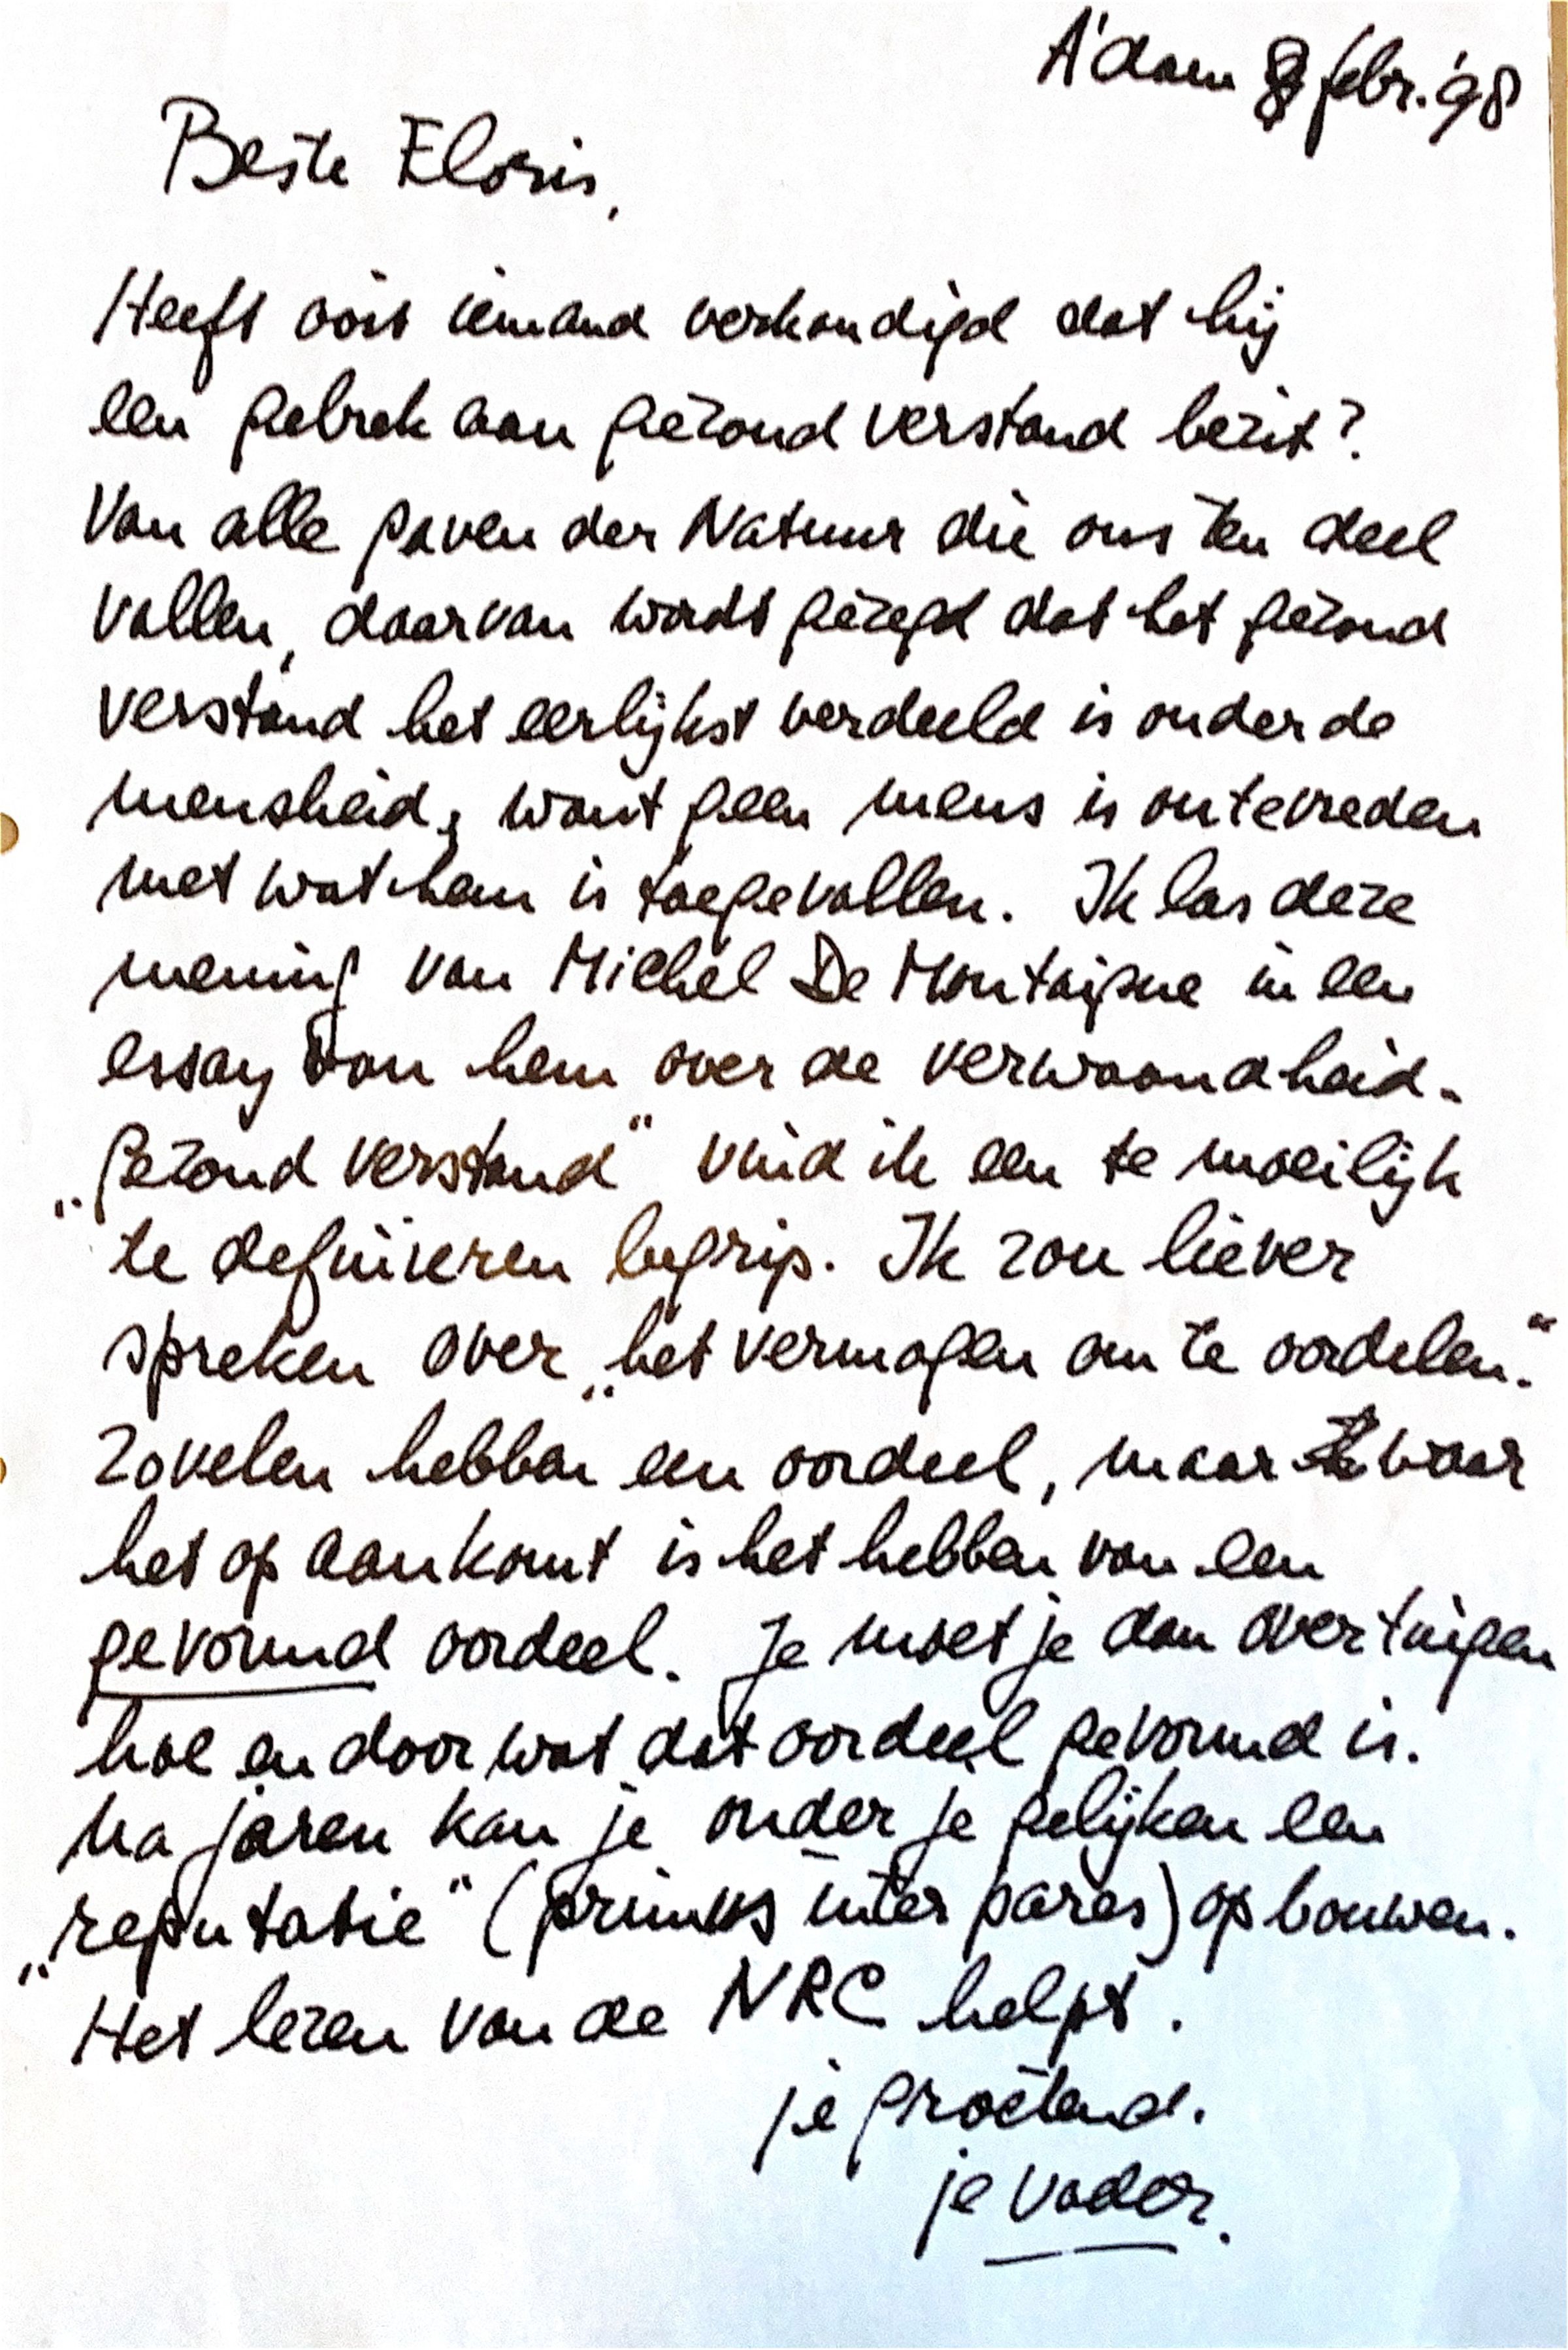 A'dam 8 febr. '98
Beste Floris,
Heeft ooit iemand verkondigd dat hij
een gebrek aan gezond verstand bezit?
Van alle gaven der Natuur die ons ten deel
vallen, daarvan wordt gezegd dat het gezond
verstand het eerlijkst verdeeld is onder de
mensheid, want geen mens is ontevreden
met wat hem is toegevallen. Ik las deze
mening van Michel De Montaigne in een
essay van hem over de verwaandheid.
„Gezond verstand" vind ik een te moeilijk
te definiëren begrip. Ik zou liever
spreken over „het vermogen om te oordelen."
Zovelen hebben een oordeel, maar waar
het op aan komt is het hebben van een
gevormd oordeel. Je moet je dan overtuigen
hoe en door wat dat oordeel gevormd is.
Na jaren kan je onder je gelijken een
„reputatie" (primus inter pares) opbouwen.
Het lezen van de NRC helpt.
je groetend.
je vader.